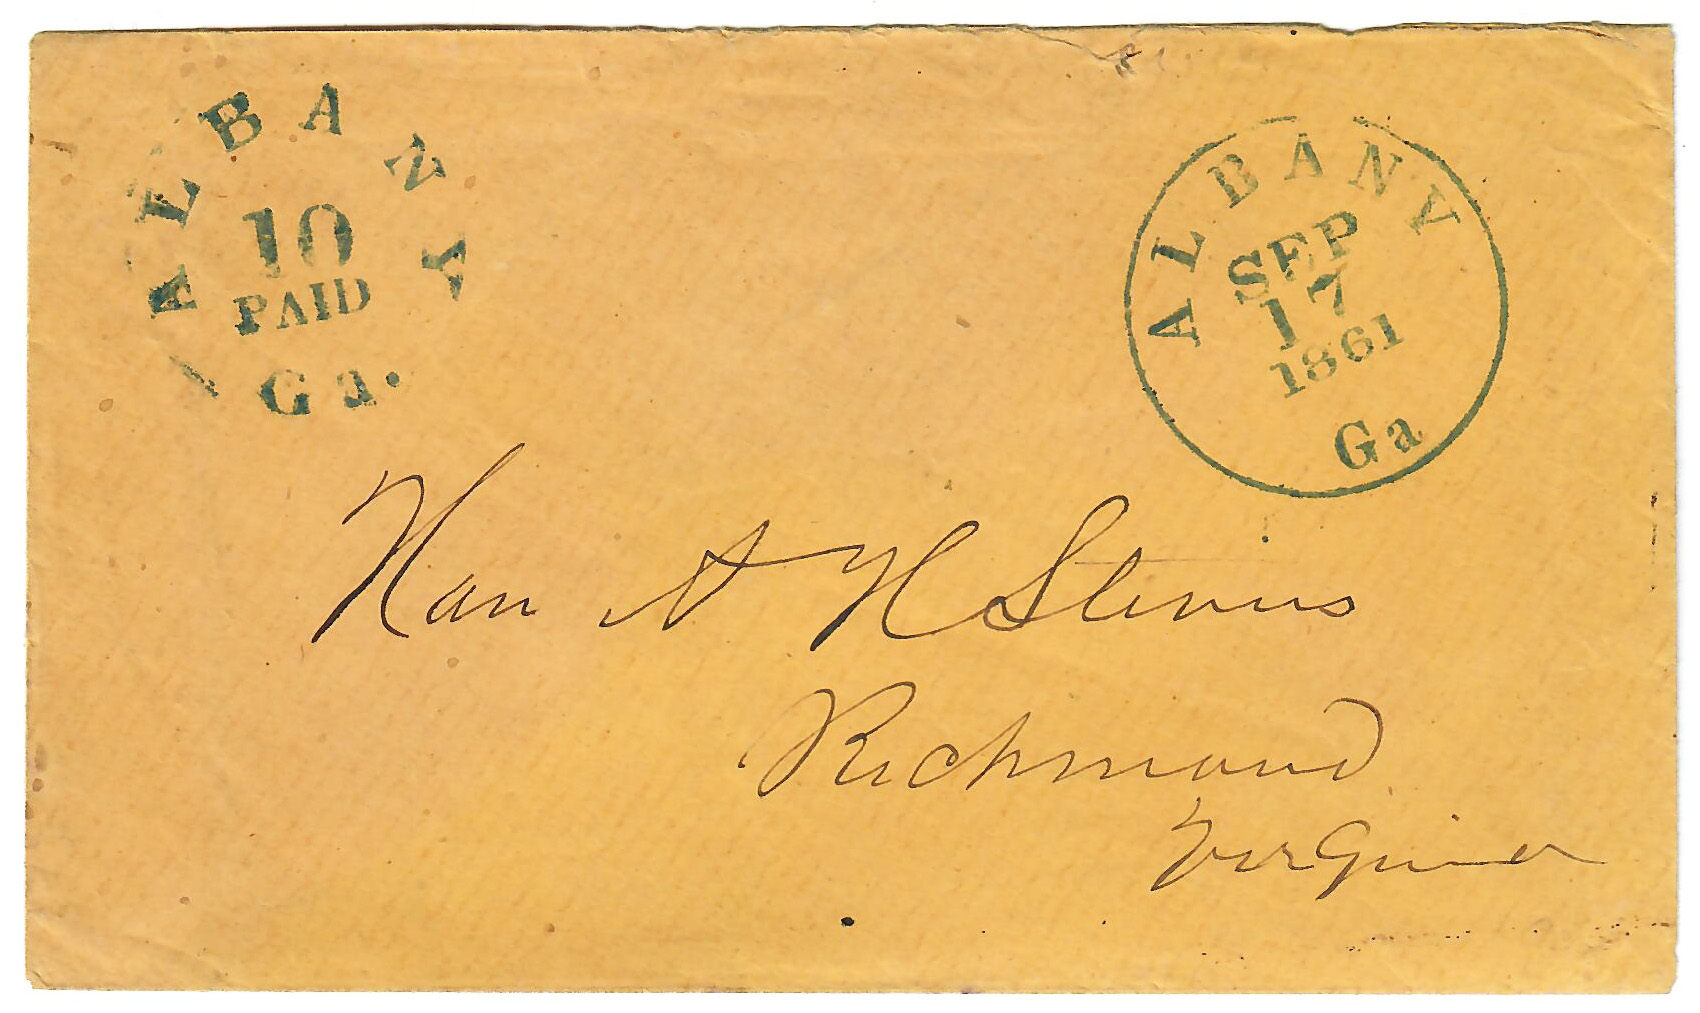 ALBANY
10
PAID
Ga.
ALBANY
SEP
17
1861
Ga
Hon A H Stevens
Richmond
Virginia